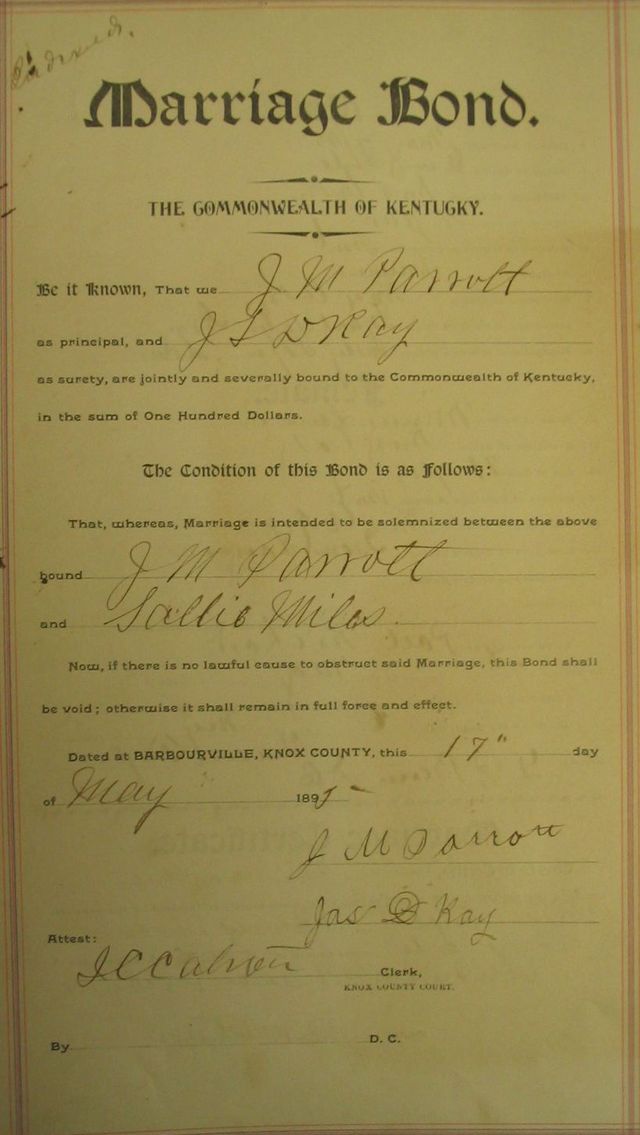 Marriage Bond.
THE COMMONWEALTH OF KENTUCKY.
Be it Known, That we J M Parrott
as principal, and J S D Kay
as surety, are jointly and severally bound to the Commonwealth of Kentucky,
in the sum of One Hundred Dollars.
The Condition of this Bond is as Follows:
That, whereas, Marriage is intended to be solemnized between the above
bound J M Parrott
and Sallie Miles
Now, if there is no lawful cause to obstruct said Marriage, this Bond shall
be void; otherwise it shall remain in full force and effect.
Dated at BARBOURVILLE, KNOX COUNTY, this 17" day
of May 1895
J M Parrott
Jas D Kay
Attest:
Clerk,
KNOX COUNTY COURT.
By D. C.